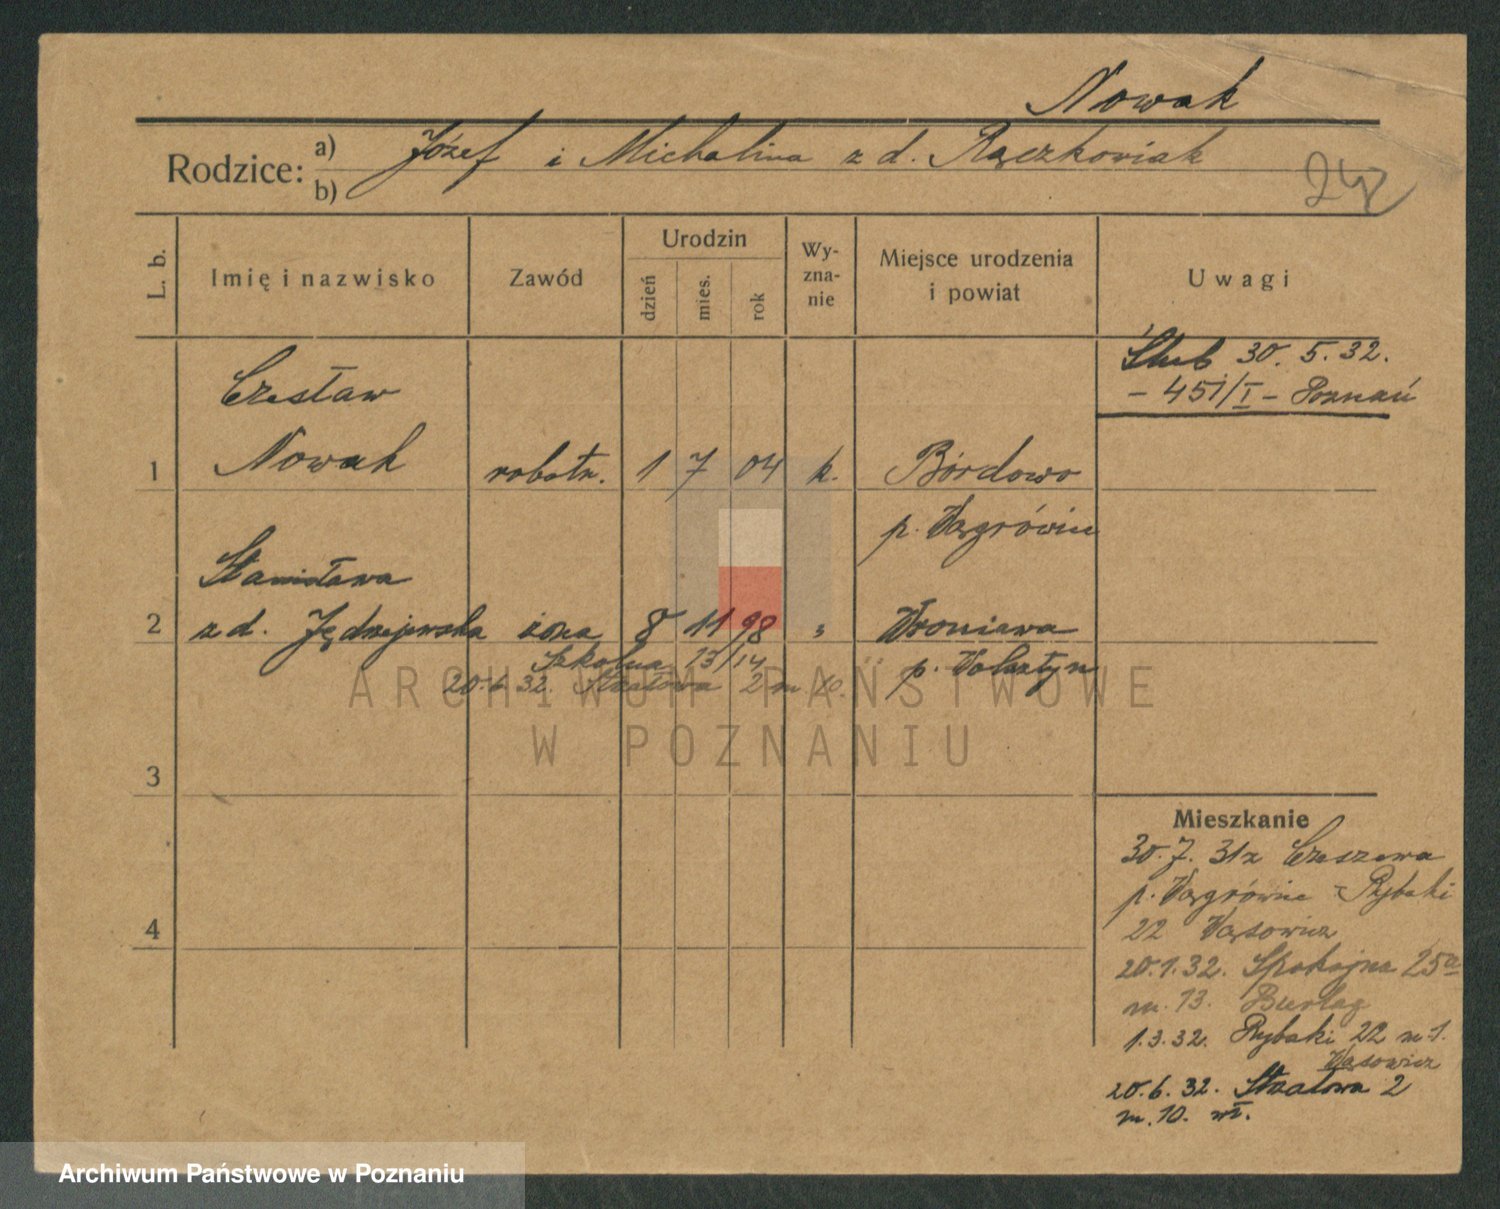 Nowak
Rodzice: a) Józef i Michalina z d. Rączkowiak
b)
242
L. b.
Imię i nazwisko
Zawód
Urodzin
dzień
mies.
rok
Wy-
zna-
nie
Miejsce urodzenia
i powiat
Uwagi
Ślub 30. 5. 32.
- 451/I - Poznań
Czesław
1 Nowak robotn. 1 7 04 k. Bórdowo
p. Wągrówiec
Stanisława
2 z d. Jędrzejewska żona 8 11 98 " Wroniawa
Szkolna 13/14 p. Wolsztyn
20.6.32. Strzałowa 2 m 10.
ARCHIWUM PAŃSTWOWE
W POZNANIU
3
4
Mieszkanie
30. 7. 31 z Czeszewa
p. Wągrówiec - Rybaki
22 Wąsowicz
20.1.32. Spokojna 25a
m. 13. Burlag
1.3.32. Rybaki 22 m 1.
Wąsowicz
20.6.32. Strzałowa 2
m. 10. wł.
Archiwum Państwowe w Poznaniu